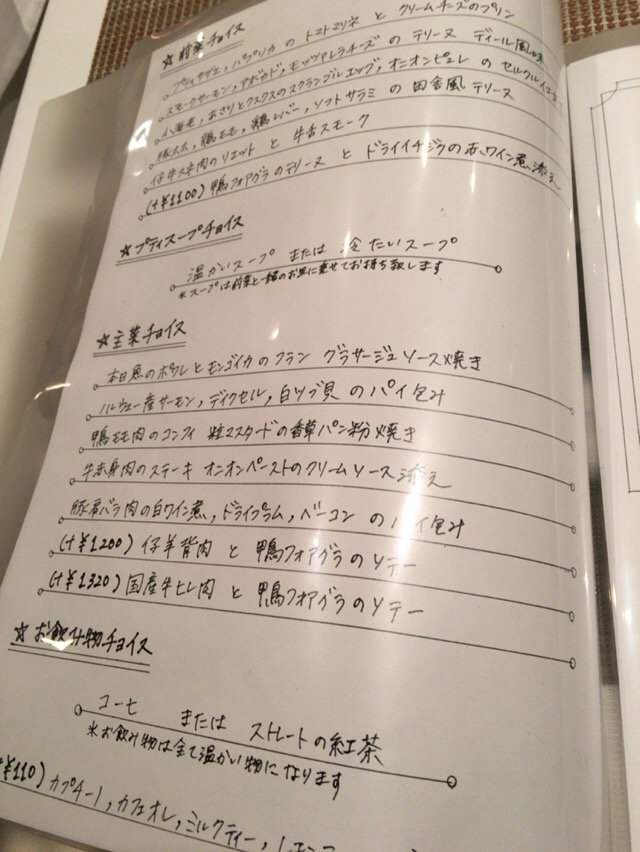 ☆前菜チョイス
プティサザエ,パプリカ の トマトマリネ と クリームチーズのプリン
スモークサーモン,アボカド,モッツァレラチーズ の テリーヌ ディール風味
小海老,あさりとクスクスのスクランブルエッグ,オニオンピュレ の セルクル
豚ホホ,鶏モモ,鶏レバー,ソフトサラミ の 田舎風 テリーヌ
仔牛スネ肉のリエット と 牛舌スモーク
(+¥1100) 鴨フォアグラのテリーヌ と ドライイチジクの赤ワイン煮 添え
☆プティスープチョイス
温かいスープ または 冷たいスープ
*スープは前菜と一緒のお皿に乗せてお持ち致します
☆主菜チョイス
本日魚のポワレとモンゴイカのフラン グラサージュソース焼き
ノルウェー産サーモン,ディクセル,白ツブ貝 のパイ包み
鴨モモ肉のコンフィ 粒マスタードの香草パン粉焼き
牛赤身肉のステーキ オニオンペーストのクリームソース添え
豚肩バラ肉の白ワイン煮,ドライプラム,ベーコン のパイ包み
(+¥1200) 仔羊背肉 と 鴨フォアグラのソテー
(+¥1320) 国産牛ヒレ肉 と 鴨フォアグラのソテー
☆お飲み物チョイス
コーヒー または ストレートの紅茶
*お飲み物は全て温かい物になります
¥110) カプチーノ,カフェオレ,ミルクティー,